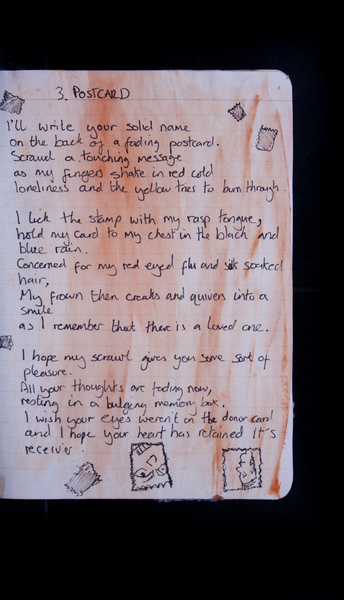 3. POSTCARD
I'll write your solid name
on the back of a fading postcard.
Scrawl a touching message
as my fingers shake in red cold
loneliness and the yellow tries to burn through.
I lick the stamp with my rasp tongue,
hold my card to my chest in the black and
blue rain.
Concerned for my red eyed flu and soaked
hair,
My frown then creaks and quivers into a
smile
as I remember that there is a loved one.
I hope my scrawl gives you some sort of
pleasure.
All your thoughts are fading now,
resting in a bulgeing memory box.
I wish your eyes weren't on the donor card
and I hope your heart has retained it's
receiver.